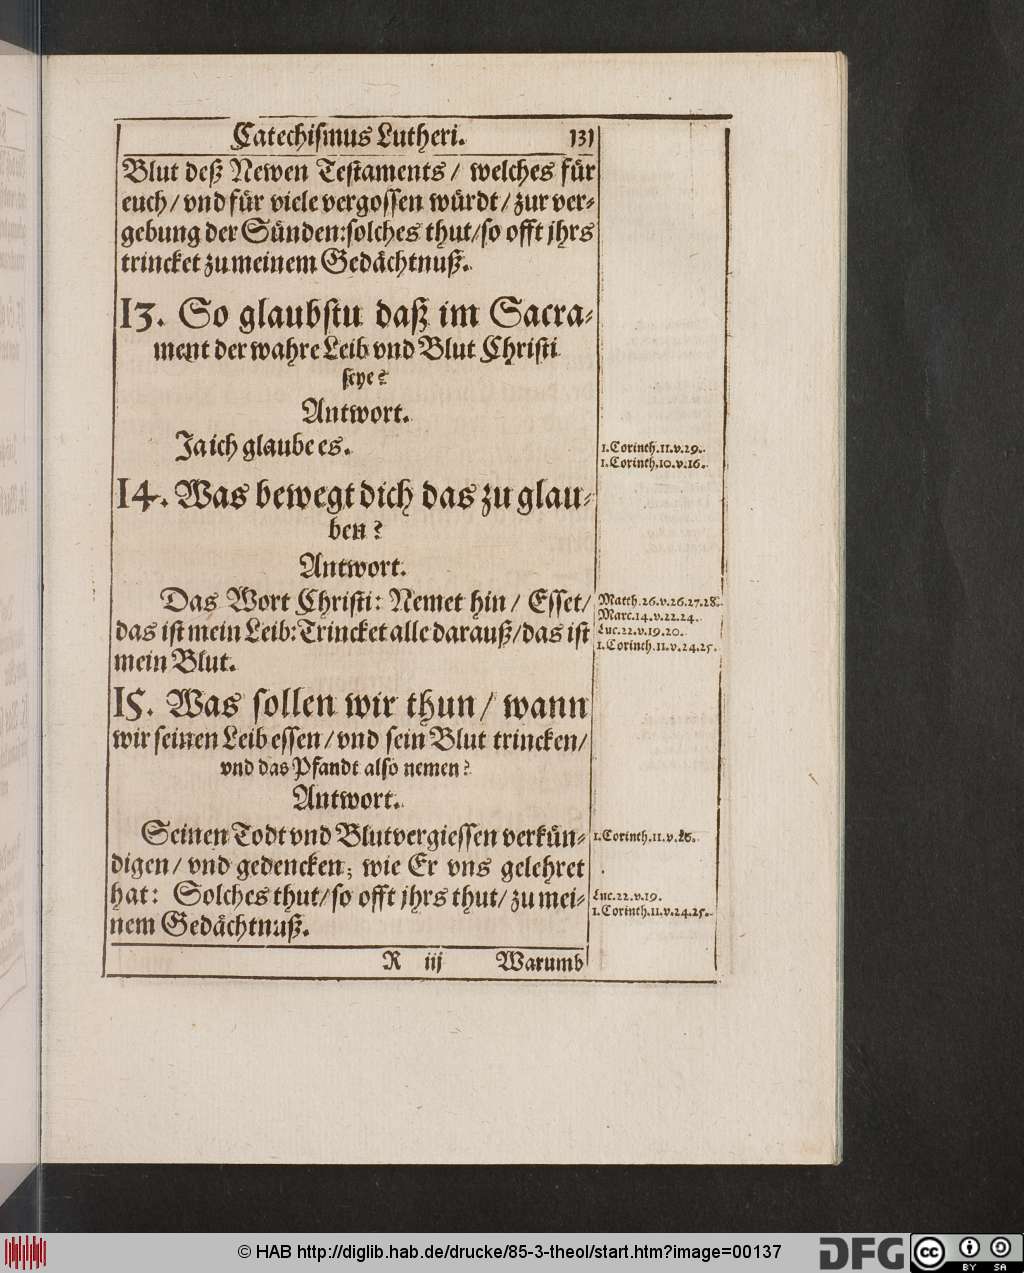 Catechiſmus Lutheri. 131
Blut deß Newen Teſtaments / welches fuͤr
euch / vnd fuͤr viele vergoſſen wuͤrdt / zur ver-
gebung der Suͤnden: ſolches thut / ſo offt jhrs
trincket zu meinem Gedaͤchtnuß.
13. So glaubſtu daß im Sacra-
ment der wahre Leib vnd Blut Chriſti
ſeye?
Antwort.
Ja ich glaube es.
1. Corinth. 11. v. 29.
1. Corinth. 10. v. 16.
14. Was bewegt dich das zu glau-
ben?
Antwort.
Das Wort Chriſti: Nemet hin / Eſſet /
das iſt mein Leib: Trincket alle darauß / das iſt
mein Blut.
Matth. 26. v. 26. 27. 28.
Marc. 14. v. 22. 24.
Luc. 22. v. 19. 20.
1. Corinth. 11. v. 24. 25.
15. Was ſollen wir thun / wann
wir ſeinen Leib eſſen / vnd ſein Blut trincken /
vnd das Pfandt alſo nemen?
Antwort.
Seinen Todt vnd Blutvergieſſen verkuͤn-
digen / vnd gedencken; wie Er vns gelehret
hat: Solches thut / ſo offt jhrs thut / zu mei-
nem Gedaͤchtnuß.
1. Corinth. 11. v. 26.
Luc. 22. v. 19.
1. Corinth. 11. v. 24. 25.
R iij Warumb
© HAB http://diglib.hab.de/drucke/85-3-theol/start.htm?image=00137
DFG
cc
BY SA